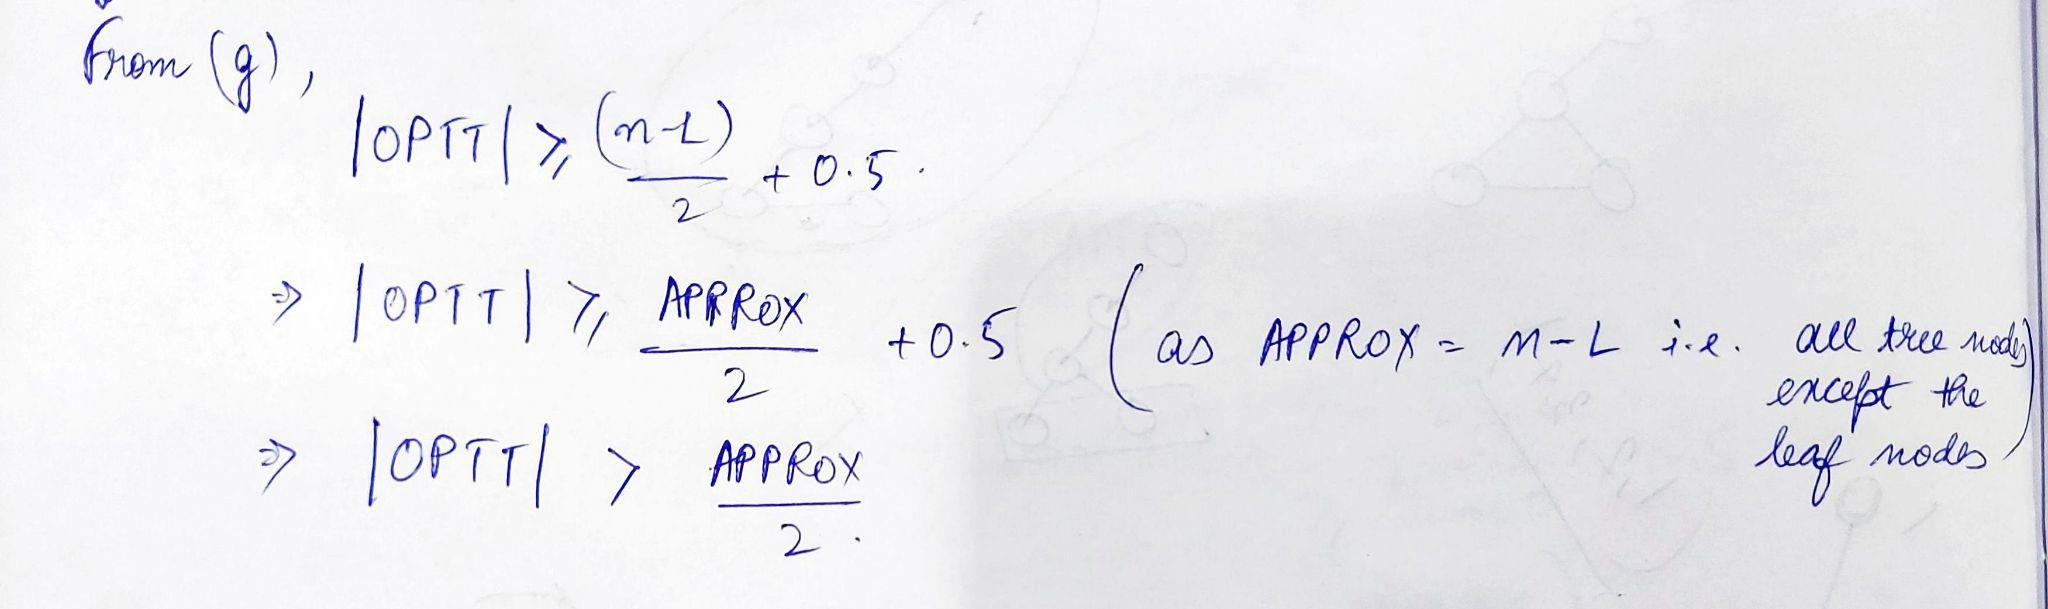 From (g),
|OPTT| ≥ (n-L)/2 + 0.5.
⇒ |OPTT| ≥ APPROX/2 + 0.5 (as APPROX = n-L i.e. all tree nodes except the leaf nodes)
⇒ |OPTT| > APPROX/2.